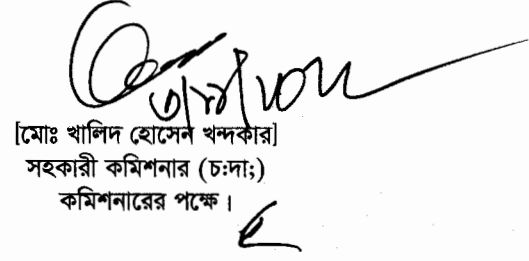 [মোঃ খালিদ হোসেন খন্দকার]
সহকারী কমিশনার (চ:দা;)
কমিশনারের পক্ষে।